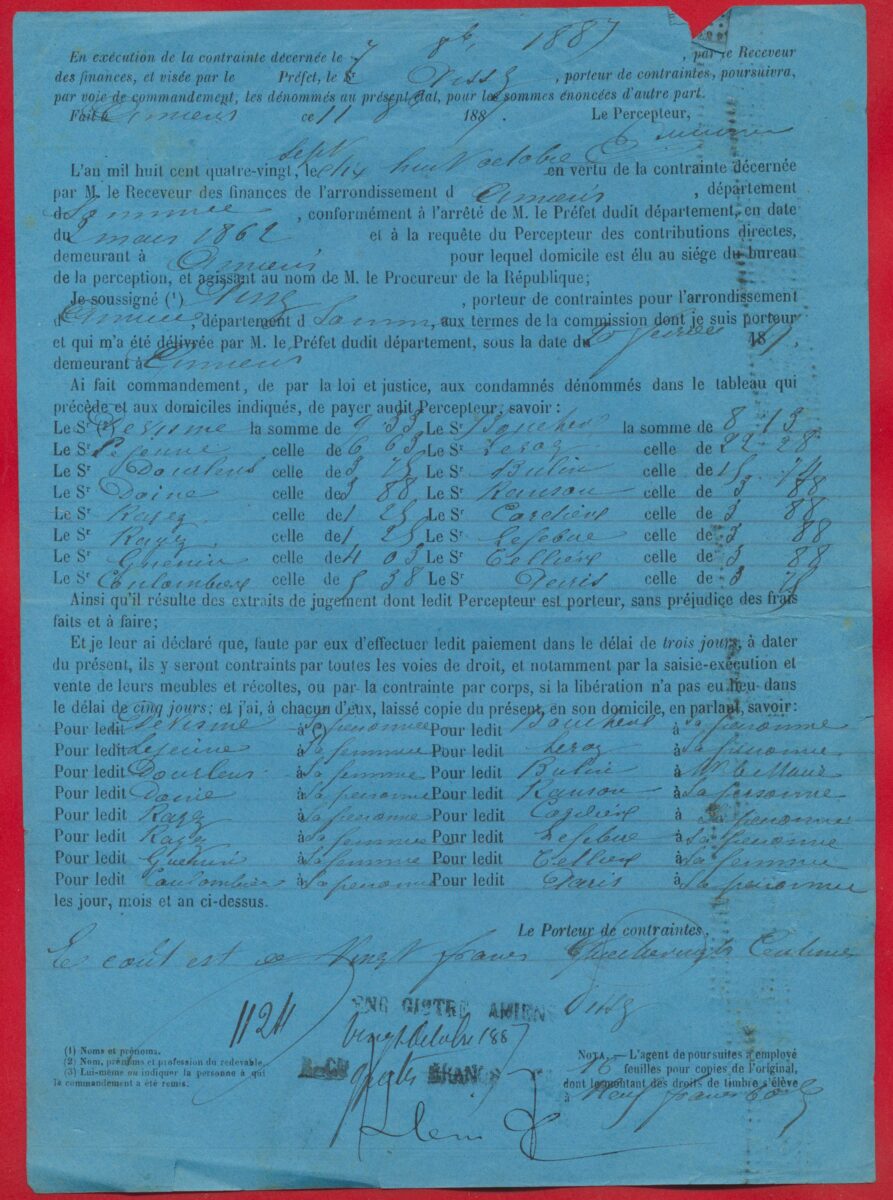 En exécution de la contrainte décernée le 7 8bre 1887, par le Receveur
des finances, et visée par le Préfet, le Sr, porteur de contraintes, poursuivra,
par voie de commandement, les dénommés au présent état, pour les sommes énoncées d'autre part.
Fait à Amiens ce 11 8bre 1887. Le Percepteur,
L'an mil huit cent quatre-vingt sept, le dix huit octobre en vertu de la contrainte décernée
par M. le Receveur des finances de l'arrondissement d Amiens, département
d Somme, conformément à l'arrêté de M. le Préfet dudit département, en date
du 2 mars 1862 et à la requête du Percepteur des contributions directes,
demeurant à Amiens pour lequel domicile est élu au siége du bureau
de la perception, et agissant au nom de M. le Procureur de la République;
Je soussigné (1), porteur de contraintes pour l'arrondissement
d Amiens, département d Somme, aux termes de la commission dont je suis porteur
et qui m'a été délivrée par M. le Préfet dudit département, sous la date du 187.
demeurant à Amiens
Ai fait commandement, de par la loi et justice, aux condamnés dénommés dans le tableau qui
précède et aux domiciles indiqués, de payer audit Percepteur, savoir :
Le Sr Devisme la somme de 9 33 Le Sr la somme de 8 13
Le Sr Lejeune celle de 6 63 Le Sr Leroy celle de 22 28
Le Sr Dourlens celle de 3 75 Le Sr Bulin celle de 15 74
Le Sr Daine celle de 3 88 Le Sr Ranson celle de 3 88
Le Sr Ragez celle de 1 25 Le Sr Cordière celle de 3 88
Le Sr celle de 1 25 Le Sr Lefebvre celle de 3 88
Le Sr Guenin celle de 4 03 Le Sr Tellière celle de 3 88
Le Sr Coulombier celle de 5 38 Le Sr Denis celle de 3 75
Ainsi qu'il résulte des extraits de jugement dont ledit Percepteur est porteur, sans préjudice des frais
faits et à faire;
Et je leur ai déclaré que, faute par eux d'effectuer ledit paiement dans le délai de trois jours, à dater
du présent, ils y seront contraints par toutes les voies de droit, et notamment par la saisie-exécution et
vente de leurs meubles et récoltes, ou par la contrainte par corps, si la libération n'a pas eu lieu dans
le délai de cinq jours; et j'ai, à chacun d'eux, laissé copie du présent, en son domicile, en parlant, savoir :
Pour ledit Devisme à Sa personne Pour ledit à Sa personne
Pour ledit Lejeune à Sa femme Pour ledit Leroy à Sa personne
Pour ledit Dourlens à Sa femme Pour ledit Bulin à Mr le Maire
Pour ledit Daine à Sa personne Pour ledit Ranson à Sa personne
Pour ledit à Sa personne Pour ledit Cordière à Sa personne
Pour ledit à Sa femme Pour ledit Lefebvre à Sa personne
Pour ledit Guenin à Sa femme Pour ledit Tellière à Sa femme
Pour ledit Coulombier à Sa personne Pour ledit à Sa personne
les jour, mois et an ci-dessus.
Le Porteur de contraintes,
Le coût est de Vingt francs Centimes
ENREGISTRÉ AMIENS
1124 vingt Octobre 1887
(1) Noms et prénoms.
(2) Nom, prénoms et profession du redevable.
(3) Lui-même ou indiquer la personne à qui
le commandement a été remis.
NOTA. — L'agent de poursuites a employé
16 feuilles pour copies de l'original,
dont le montant des droits de timbre s'élève
à Neuf francs